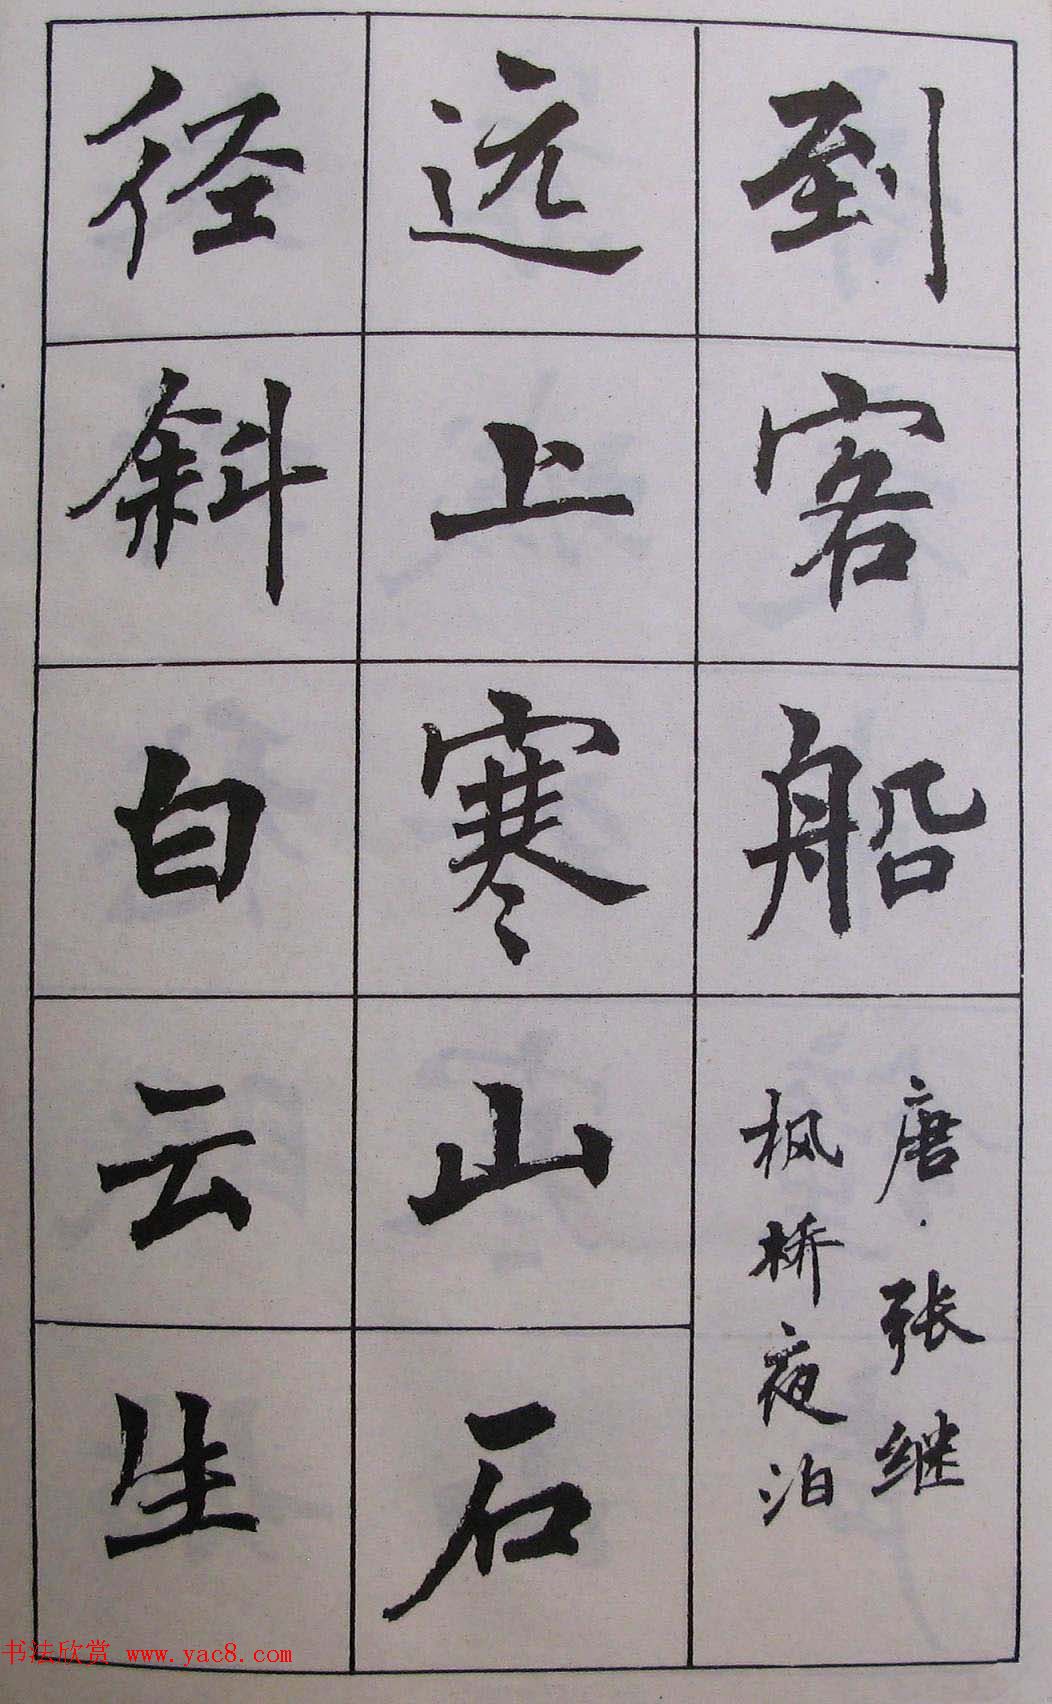 到客船
唐·张继
枫桥夜泊
远上寒山石
径斜白云生
书法欣赏 www.yac8.com